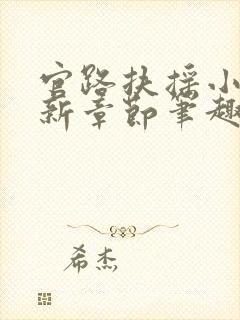 官路扶摇小
新章节笔趣
希杰